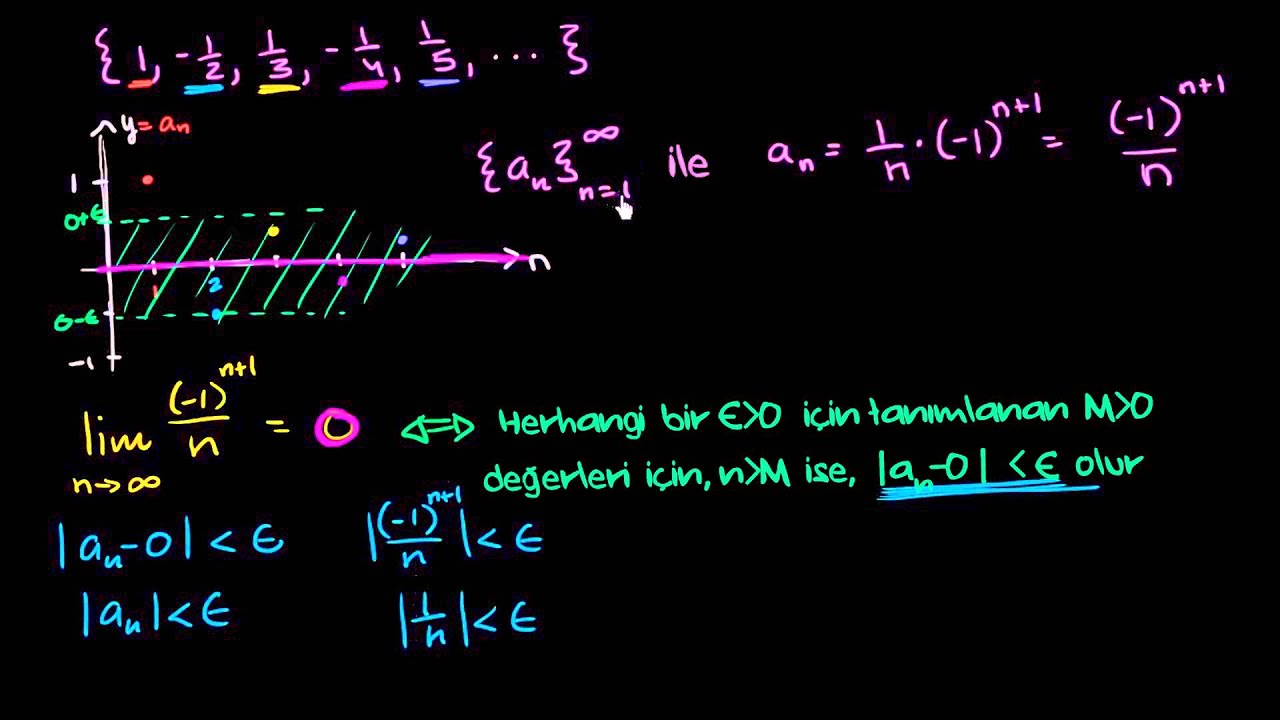 {1, -1/2, 1/3, -1/4, 1/5, ...}
y = aₙ
{aₙ}ₙ₌₁^∞ ile aₙ = 1/n · (-1)ⁿ⁺¹ = (-1)ⁿ⁺¹/n
1
0+ϵ
n
1 2
0-ϵ
-1
lim n→∞ (-1)ⁿ⁺¹/n = 0 ⇔ Herhangi bir ϵ>0 için tanımlanan M>0
değerleri için, n>M ise, |aₙ-0| < ϵ olur
|aₙ-0| < ϵ |(-1)ⁿ⁺¹/n| < ϵ
|aₙ| < ϵ |1/n| < ϵ